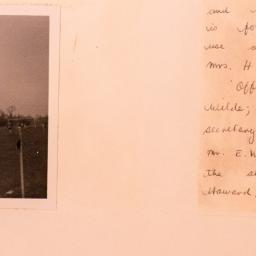 and
is fo
use
Mrs. H
Off
Wilde;
secretary
Mr. E. W
the s
Howard,